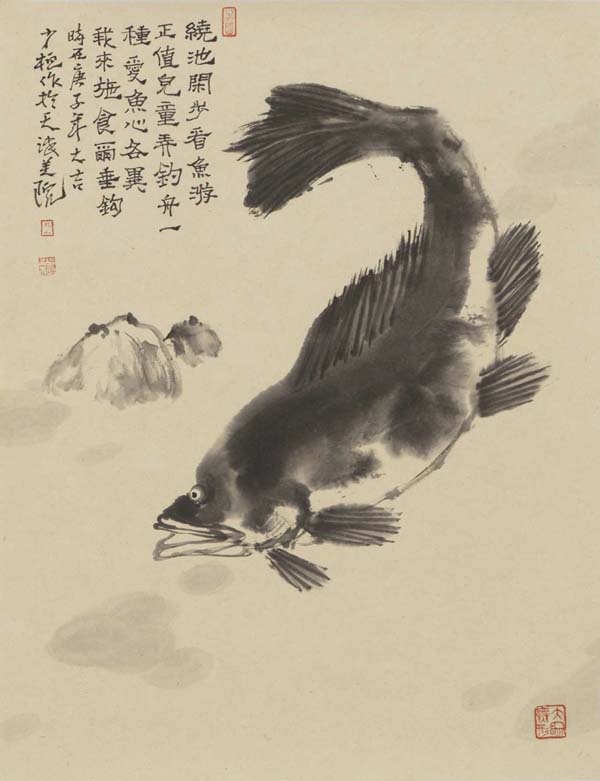 繞池閑步看魚游
正值兒童弄釣舟一
種愛魚心各異
我來施食爾垂鈎
時在庚子年大吉
作於天美院